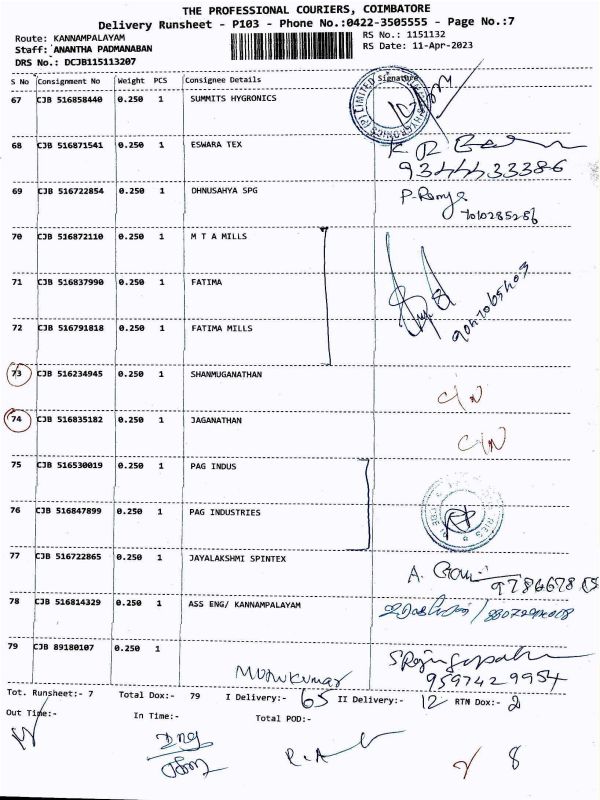 THE PROFESSIONAL COURIERS, COIMBATORE
Delivery Runsheet - P103 - Phone No.:0422-3505555 - Page No.:7
Route: KANNAMPALAYAM
Staff: ANANTHA PADMANABAN
DRS No.: DCJB115113207
RS No.: 1151132
RS Date: 11-Apr-2023
S No Consignment No Weight PCS Consignee Details Signature
67 CJB 516858440 0.250 1 SUMMITS HYGRONICS
68 CJB 516871541 0.250 1 ESWARA TEX
9344433386
69 CJB 516722854 0.250 1 DHNUSAHYA SPG P. Ramya
7010285286
70 CJB 516872110 0.250 1 M T A MILLS
71 CJB 516837990 0.250 1 FATIMA
72 CJB 516791818 0.250 1 FATIMA MILLS
73 CJB 516234945 0.250 1 SHANMUGANATHAN C/N
74 CJB 516835182 0.250 1 JAGANATHAN C/N
75 CJB 516530019 0.250 1 PAG INDUS
76 CJB 516847899 0.250 1 PAG INDUSTRIES
77 CJB 516722865 0.250 1 JAYALAKSHMI SPINTEX
78 CJB 516814329 0.250 1 ASS ENG/ KANNAMPALAYAM
79 CJB 89180107 0.250 1
9597429954
Tot. Runsheet:- 7 Total Dox:- 79 I Delivery:- 65 II Delivery:- 12 RTM Dox:- 2
Out Time:- In Time:- Total POD:-
8